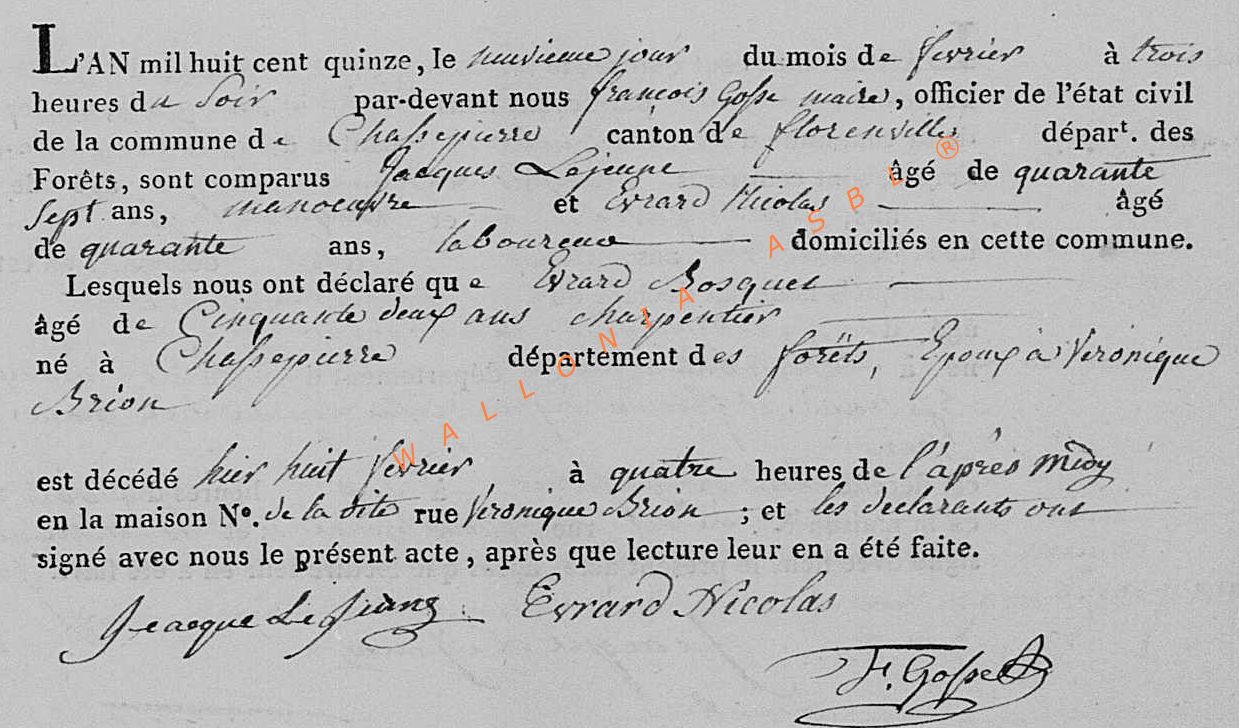 L'AN mil huit cent quinze, le neuvieme jour du mois de fevrier à trois
heures du soir par-devant nous françois Gosse maire, officier de l'état civil
de la commune de Chassepierre canton de florenville départ. des
Forêts, sont comparus Jacques Lejeune âgé de quarante
sept ans, manoeuvre et Evrard Nicolas âgé
de quarante ans, laboureur domiciliés en cette commune.
Lesquels nous ont déclaré que Evrard Bosquet
âgé de Cinquante deux ans charpentier
né à Chassepierre département des forêts, Epoux à Veronique
Brion
est décédé hier huit fevrier, à quatre heures de l'après midy
en la maison No. de la dite rue Veronique Brion ; et les declarants ont
signé avec nous le présent acte, après que lecture leur en a été faite.
Evrard Nicolas
F. Gosse
WALLONIA ASBL ®